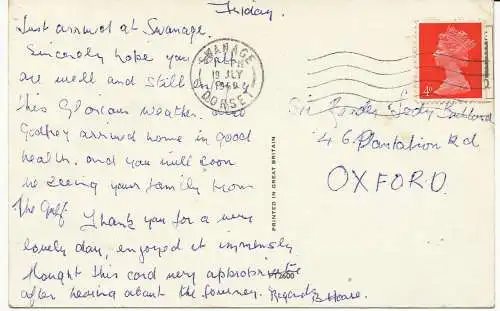 Friday.
Just arrived at Swanage.
Sincerely hope you both
are well and still enjoy
this Glorious weather.
Godfrey arrived home in good
health. and you will soon
be seeing your family from
The Gulf. Thank you for a very
lovely day, enjoyed it immensly
thought this card very appropriate
after hearing about the Journey. Regards
SWANAGE
19 JLY
1968
DORSET
4D
PRINTED IN GREAT BRITAIN
46 Plantation Rd
OXFORD